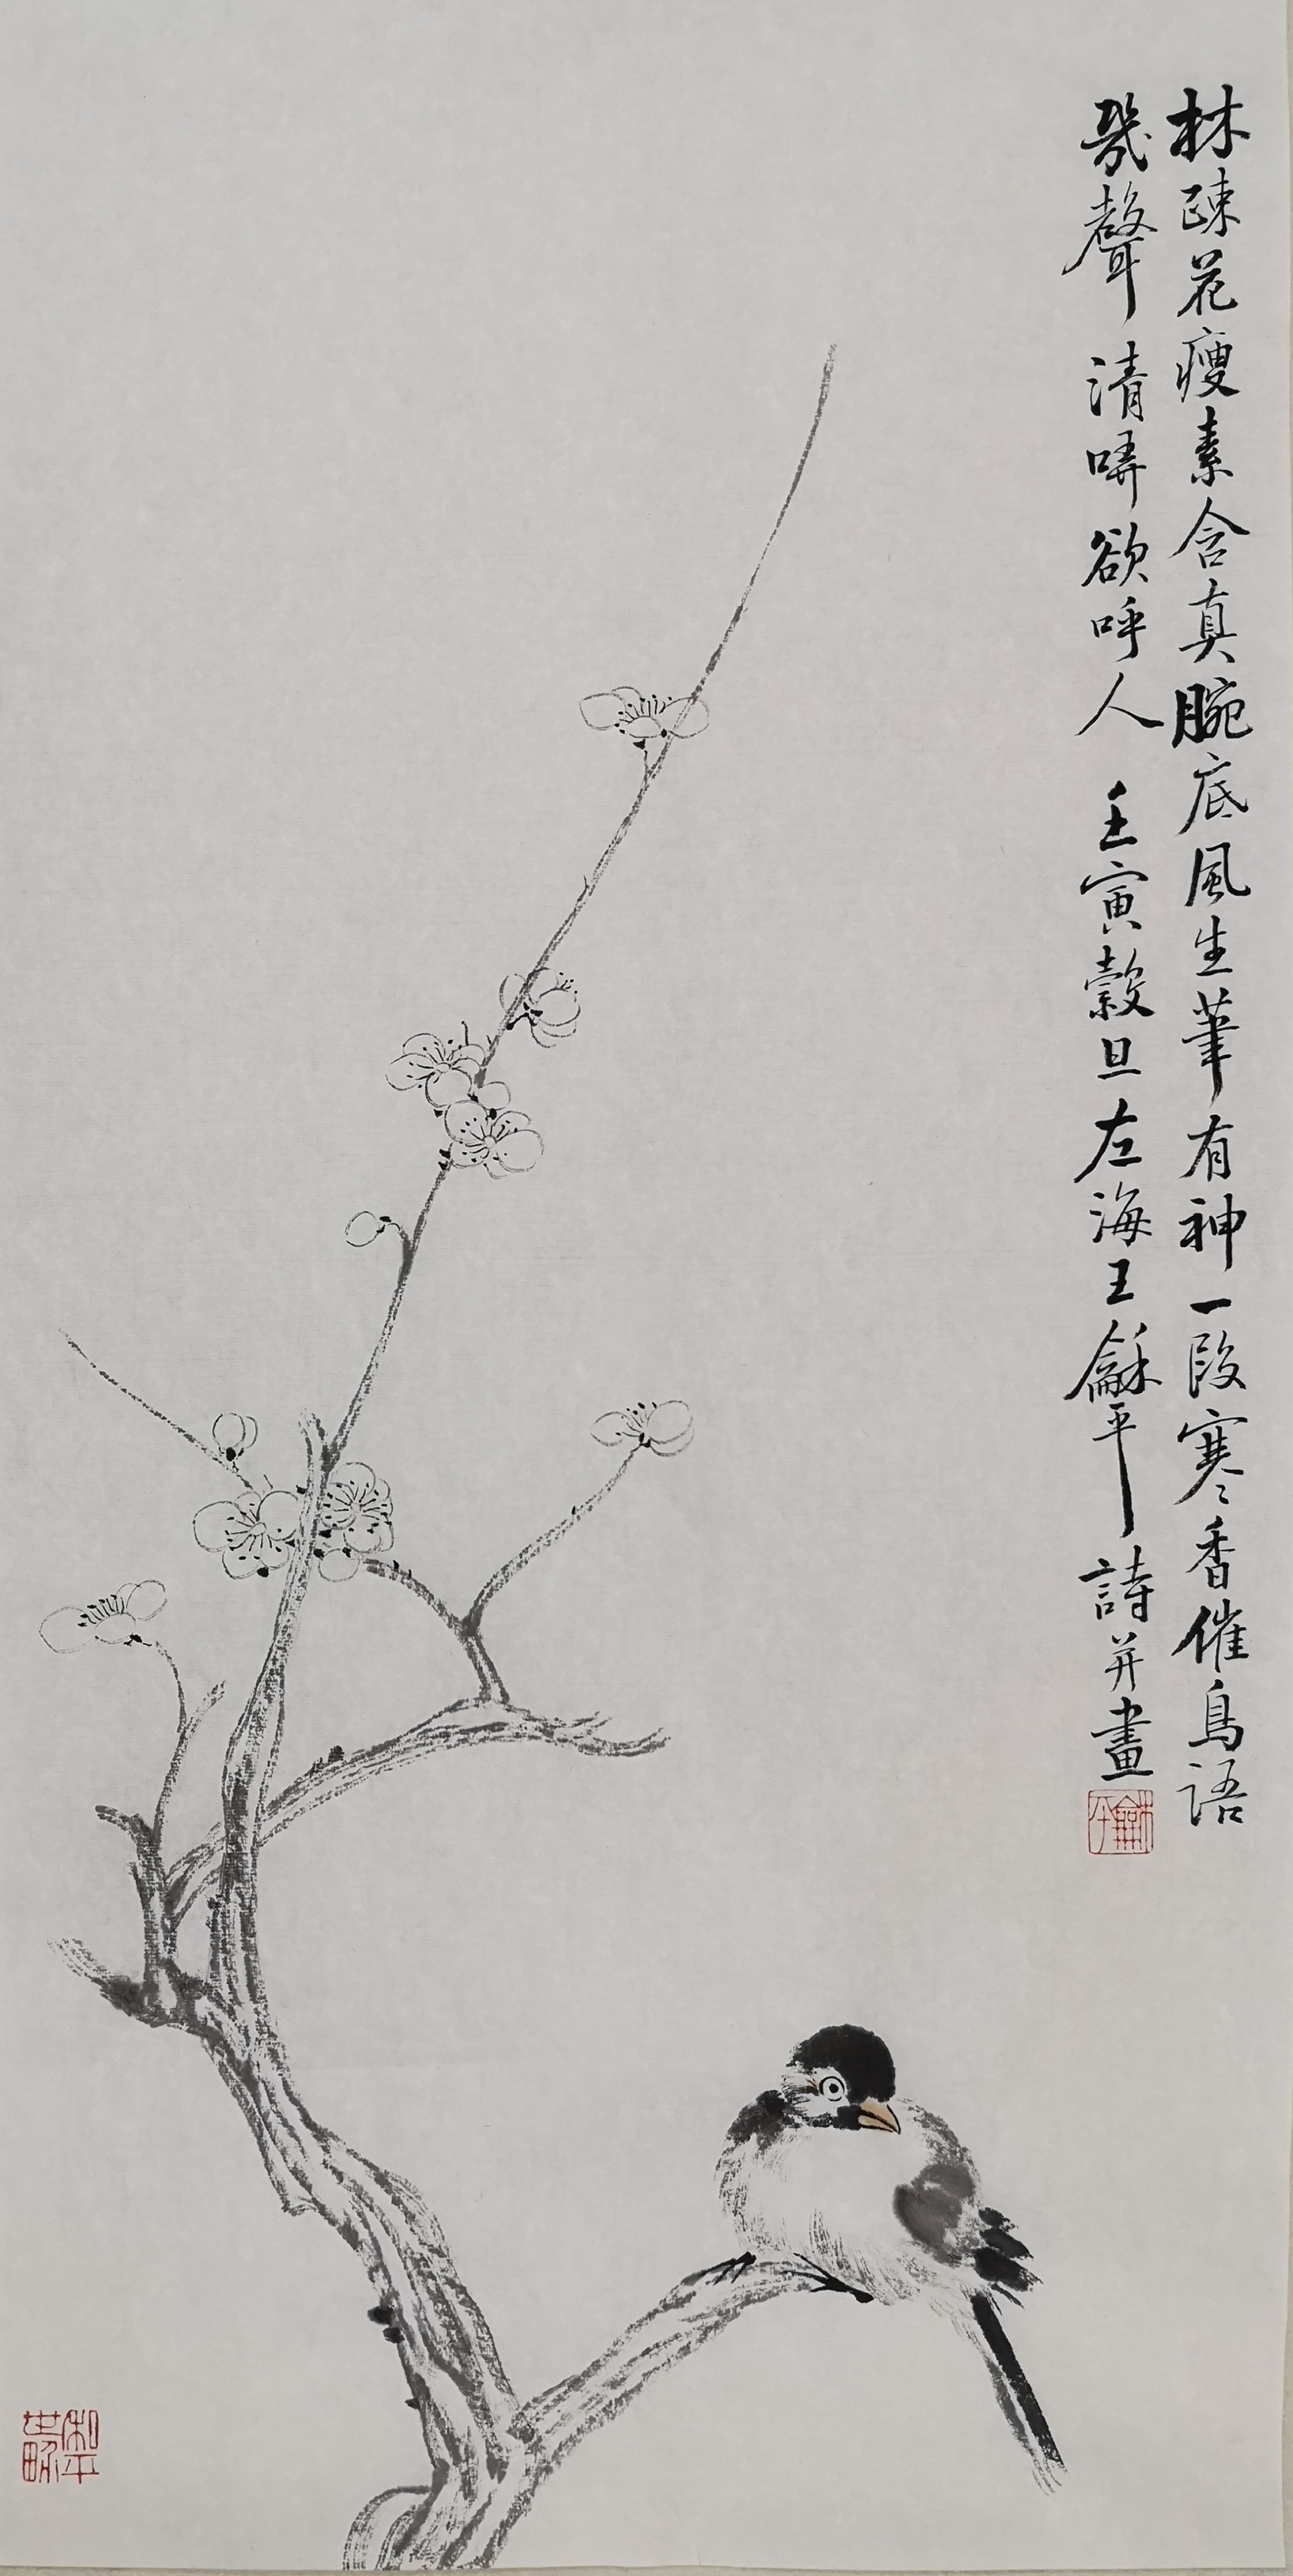 林疎花瘦素含真腕底風生筆有神一段寒香催鳥語
幾聲清哢欲呼人 壬寅穀旦左海王龢平詩并畫
龢平
和平
世畍